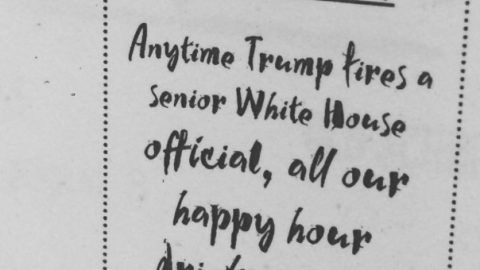 Anytime Trump fires a
senior White House
official, all our
happy hour